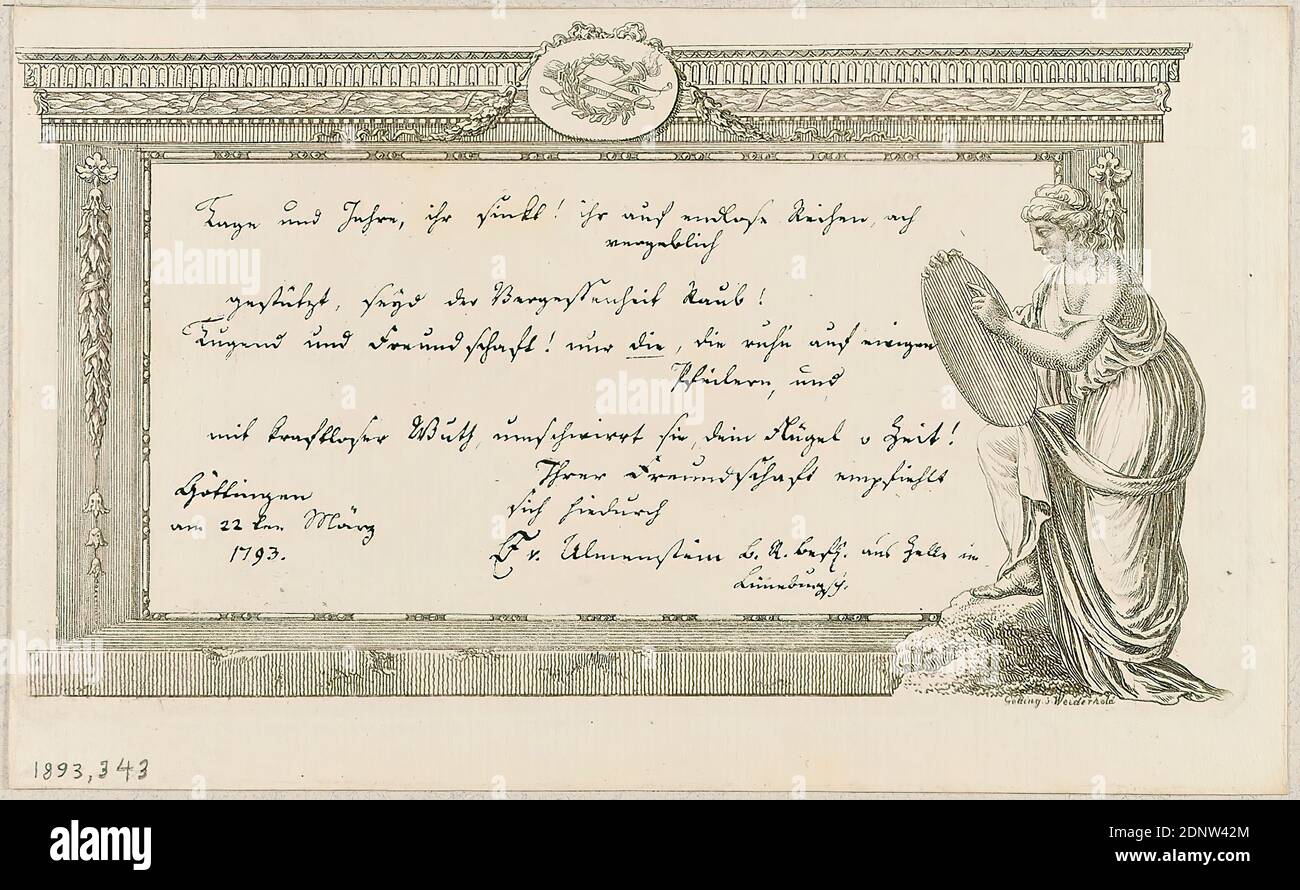 Tage und Jahre, ihr sinkt! ihr auf endlose Reihen, ach
vergeblich
gestützt, seyd der Vergessenheit Raub!
Tugend und Freundschaft! nur die, die ruhn auf ewigen
Pfeilern, und
mit kraftloser Wuth, umschwirrt sie, dein Flügel o Zeit!
Ihrer Freundschaft empfiehlt
sich hiedurch
Göttingen
am 22ten März
1793.
E v. Ulmenstein b. R. Befl. aus Zelle im
Lüneburgsch.
Götting. b. Weiderhold
1893,343
alamy
Image ID: 2DNW42M
www.alamy.com